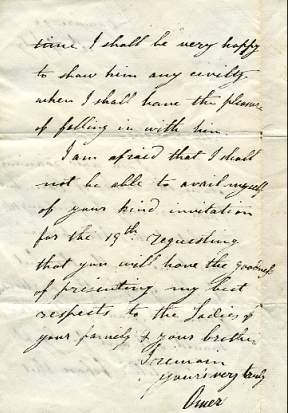 time I shall be very happy
to show him any civility
when I shall have the pleasure
of falling in with him.
I am afraid that I shall
not be able to avail myself
of your kind invitation
for the 19th requesting
that you will have the goodness
of presenting my best
respects to the Ladies of
your family & your brother
I remain
yours very truly
Omer